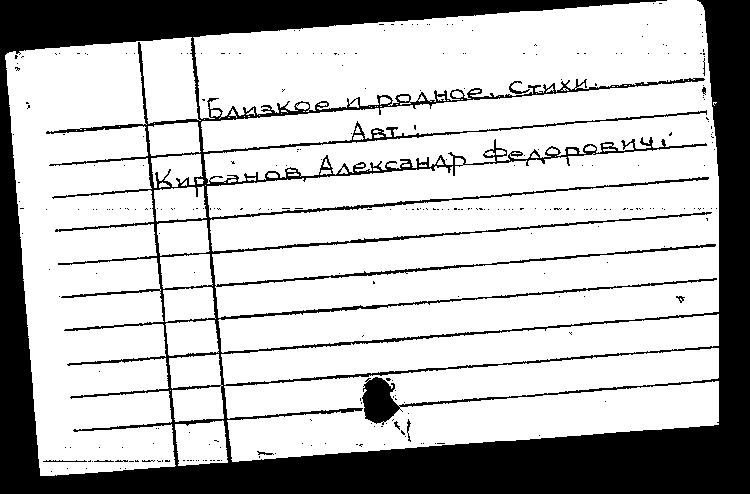 Близкое и родное. Стихи.
Авт.:
Кирсанов, Александр Федорович.